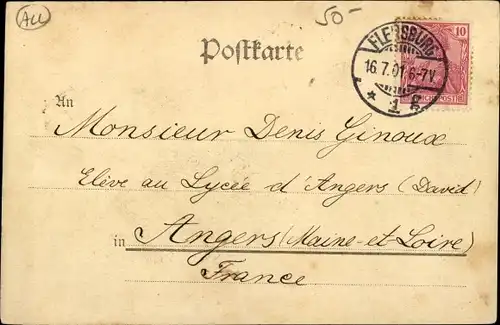 All
50-
Postkarte
FLENSBURG
16.7.01.6-7V.
* 1 g
10
REICHSPOST
An
Monsieur Denis Ginoux
Elève au Lycée d'Angers (David)
in Angers (Maine-et-Loire)
France